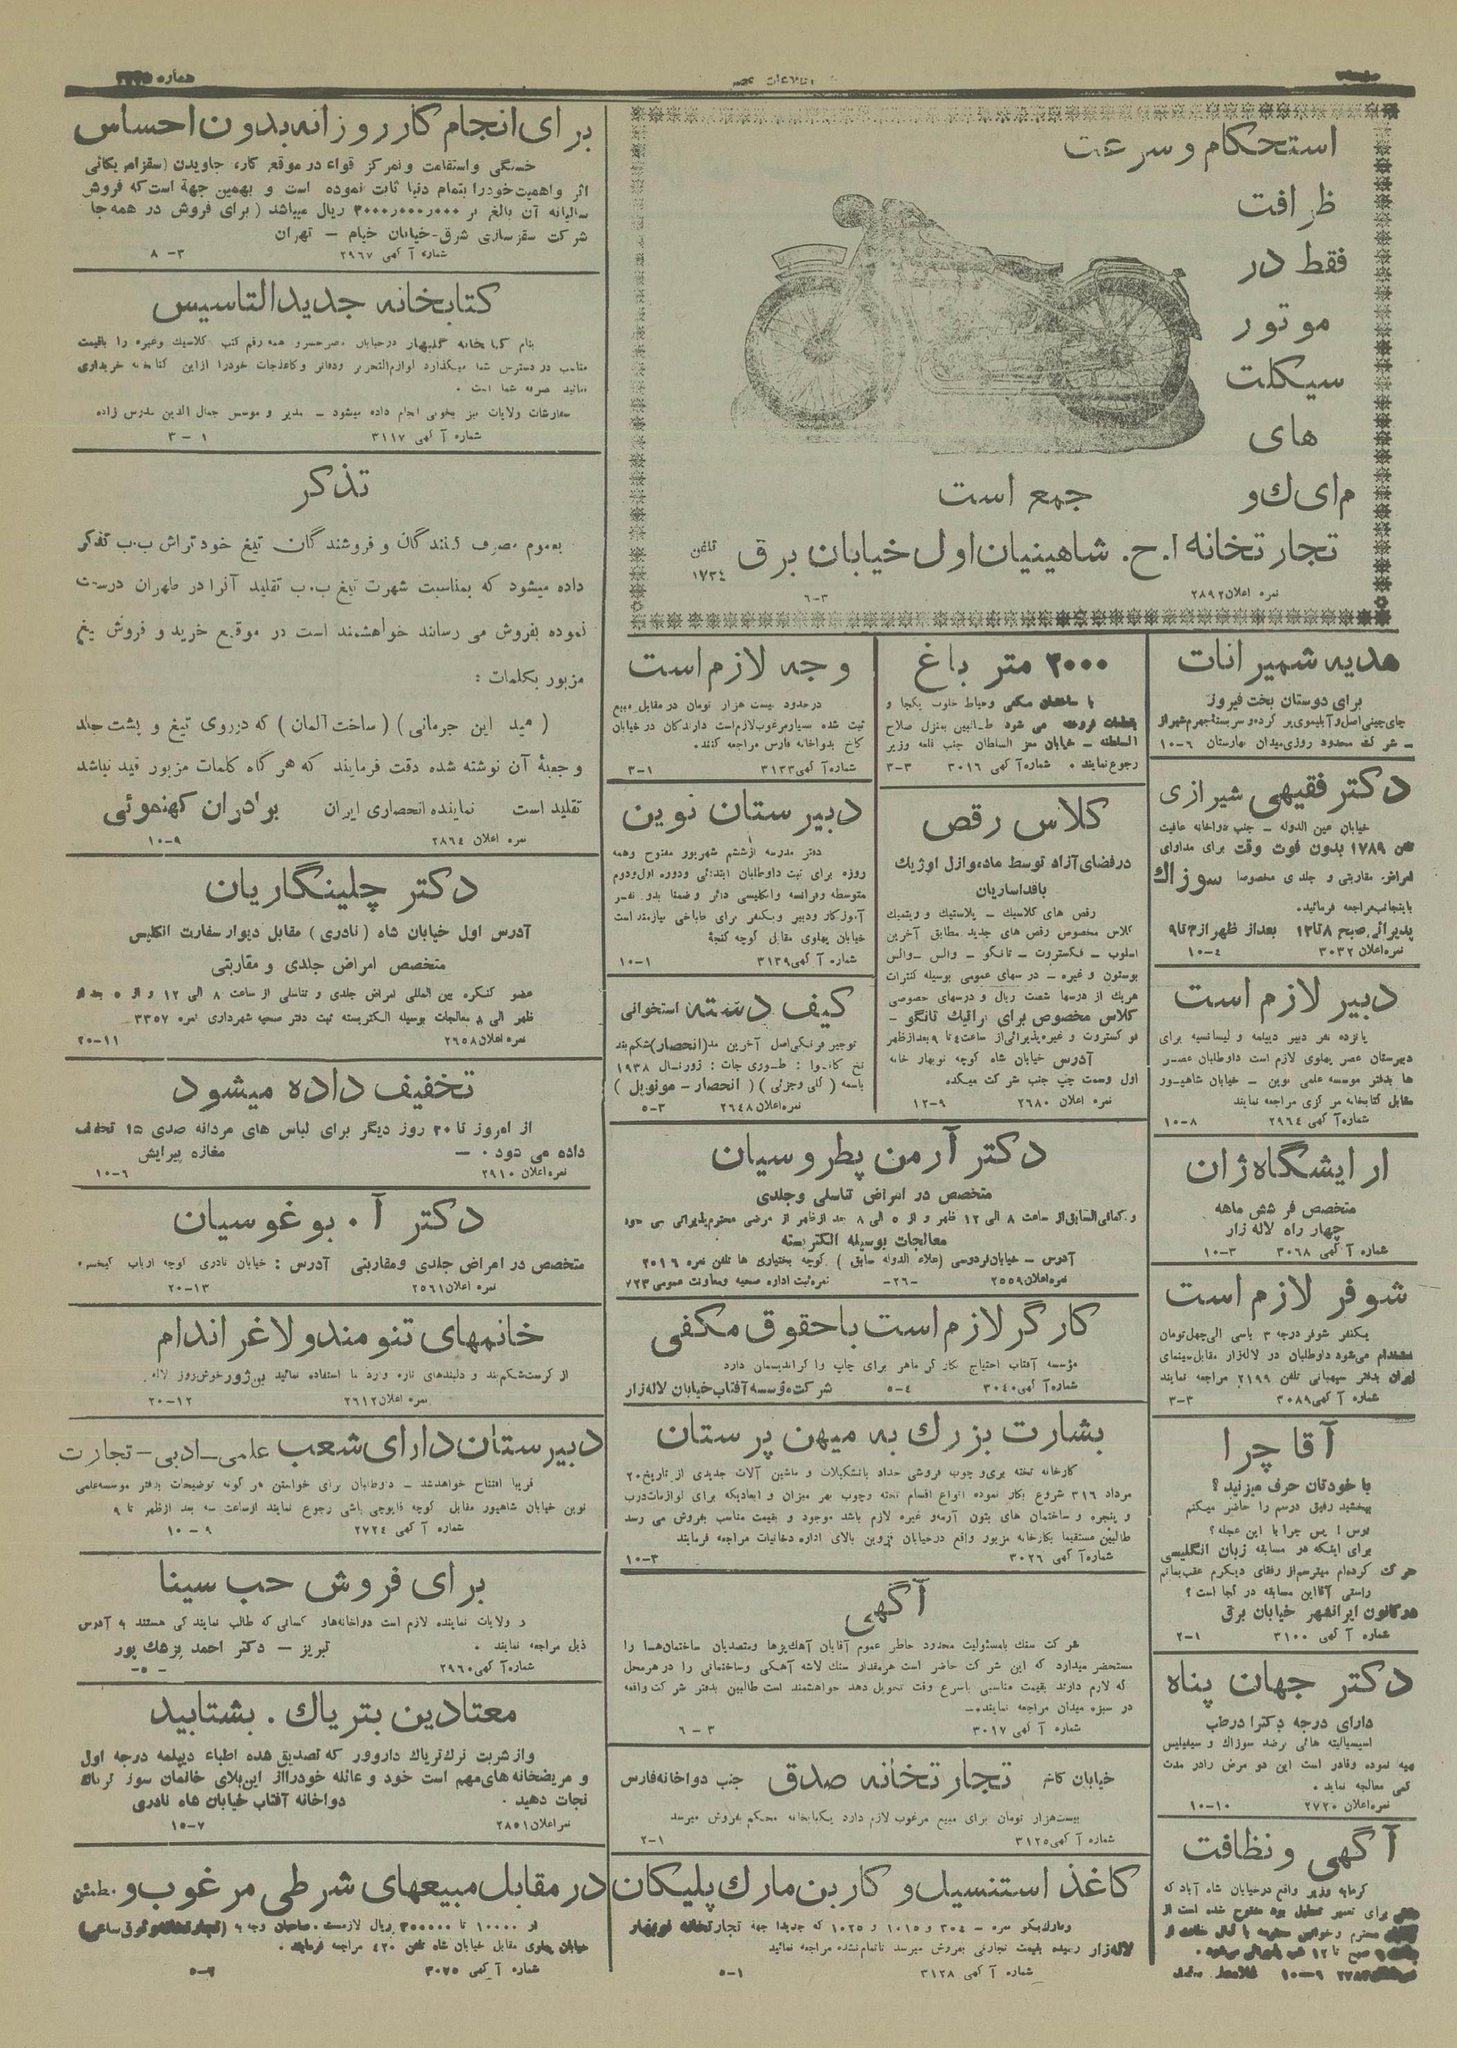 استحکام و سرعت
ظرافت
فقط در
موتور
سیکلت
های
م‌ای‌ك‌و جمع است
تجارتخانه ا.ح. شاهینیان اول خیابان برق تلفن ۱۷۳۴
نمره اعلان ۲۸۹۲ ۳-۶
هدیه شمیرانات
برای دوستان بخت فیروز
۱۰-۶
دکتر فقیهی شیرازی
خیابان عین الدوله - جنب دواخانه عافیت
۱۷۸۹ بدون فوت وقت برای مداوای
امراض مقاربتی و جلدی مخصوصا سوزاك
باینجانب مراجعه فرمائید.
پذیرائی صبح ۸ تا ۱۲ بعداز ظهر از ۳ تا ۹
نمره اعلان ۳۰۳۲ ۱۰-۴
دبیر لازم است
پانزده نفر دبیر دیپلمه و لیسانسیه برای
دبیرستان عصر پهلوی لازم است داوطلبان عصر
ها بدفتر موسسه علمی نوین - خیابان شاهپور
مقابل کتابخانه مرکزی مراجعه نمایند
شماره آگهی ۲۹۶۴ ۱۰-۸
ارایشگاه ژان
متخصص فر شش ماهه
چهار راه لاله زار
شماره آگهی ۳۰۶۸ ۱۰-۳
شوفر لازم است
یکنفر شوفر درجه ۳ باسی الی چهل تومان
استخدام می‌شود داوطلبان در لاله‌زار مقابل سینمای
ایران بدفتر سپهبانی تلفن ۲۱۹۹ مراجعه نمایند
شماره آگهی ۳۰۸۹ ۳-۳
آقا چرا
با خودتان حرف میزنید؟
ببخشید رفیق درسم را حاضر میکنم
درس! پس چرا با این عجله؟
برای اینکه در مسابقه زبان انگلیسی
شرکت کرده‌ام میترسم از رفقای دیگرم عقب بمانم
راستی آقا این مسابقه در کجا است؟
در کانون ایرانشهر خیابان برق
شماره آگهی ۳۱۰۰ ۲-۱
دکتر جهان پناه
دارای درجه دکترا درطب
کمی معالجه نماید.
نمره اعلان ۲۷۲۰ ۱۰-۱۰
آگهی و نظافت
گرمابه وزیر واقع درخیابان شاه آباد که
۳۰۰۰ متر باغ
رجوع نمایند. شماره آگهی ۳۰۱۶ ۳-۳
کلاس رقص
درفضای آزاد توسط مادموازل اوژیك
بافداساریان
رقص های کلاسیك - پلاستیك و ریتمیك
کلاس مخصوص رقص های جدید مطابق آخرین
اسلوب - فکستروت - تانگو - والس - والس
بوستون و غیره - درسهای عمومی بوسیله کنترات
هریك از درسها شصت ریال و درسهای خصوصی
فوکستروت و غیره پذیرائی از ساعت ۴ تا ۹ بعدازظهر
آدرس خیابان شاه کوچه نوبهار خانه
اول وسمت چپ جنب شرکت میکده
نمره اعلان ۲۶۸۰ ۱۲-۹
وجه لازم است
درحدود بیست هزار تومان در مقابل مبیع
ثبت شده بسیار مرغوب لازم است دارندگان در خیابان
کاخ بدواخانه فارس مراجعه کنند.
شماره آگهی ۳۱۳۳ ۳-۱
دبیرستان نوین
دفتر مدرسه ازششم شهریور مفتوح وهمه
روزه برای ثبت داوطلبان ابتدائی ودوره اول ودوم
متوسطه وفرانسه وانگلیسی دائر و ضمنا بدو نفر
آموزگار ودبیر ویکنفر برای طباخی نیازمند است
خیابان پهلوی مقابل کوچه گنجه
شماره آگهی ۳۱۳۹ ۱۰-۱
کیف دسته استخوانی
باسمه (کلی وجزئی) (انحصار - مونوپل)
نمره اعلان ۲۶۴۸ ۵-۳
دکتر آرمن پطروسیان
متخصص در امراض تناسلی و جلدی
و کمافی‌السابق از ساعت ۸ الی ۱۲ ظهر و از ۵ الی ۸ بعد ازظهر از مرضی محترم پذیرائی می شود
معالجات بوسیله الکتریسته
آدرس - خیابان فردوسی (علاء الدوله سابق) کوچه بختیاری ها تلفن نمره ۳۵۱۶
نمره اعلان ۲۵۵۹ -۲۶- نمره ثبت اداره صحیه ومعاونت عمومی ۷۲۳
کارگر لازم است باحقوق مکفی
مؤسسه آفتاب احتیاج بکارگر ماهر برای چاپ و اگراندیسمان دارد
شماره آگهی ۳۰۴۰ ۵-۴ شرکت مؤسسه آفتاب خیابان لاله زار
بشارت بزرك به میهن پرستان
کارخانه تخته بری و چوب فروشی حداد باتشکیلات و ماشین آلات جدیدی از تاریخ ۲۰
مرداد ۳۱۶ شروع بکار نموده انواع اقسام تخته وچوب بهر میزان و ابعادیکه برای لوازمات درب
و پنجره و ساختمان های بتون آرمه و غیره لازم باشد موجود و بقیمت مناسب بفروش می رسد
طالبین مستقیما بکارخانه مزبور واقع درخیابان قزوین بالای اداره دخانیات مراجعه فرمایند
شماره آگهی ۳۰۲۶ ۱۰-۳
آگهی
شرکت سنك بامسئولیت محدود خاطر عموم آقایان آهك‌پزها ومتصدیان ساختمان‌ها را
مستحضر میدارد که این شرکت حاضر است هرمقدار سنك لاشه آهکی وساختمانی را در هرمحل
که لازم دارند بقیمت مناسبی باسرع وقت تحویل دهد خواهشمند است طالبین بدفتر شرکت واقعه
در سبزه میدان مراجعه نمایند.-
شماره آگهی ۳۰۱۷ ۶-۳
خیابان کاخ تجارتخانه صدق جنب دواخانه فارس
بیست‌هزار تومان برای مبیع مرغوب لازم دارد یکبابخانه محکم بفروش میرسد
شماره آگهی ۳۱۲۵ ۲-۱
کاغذ استنسیل و کاربن مارك پلیکان
ومارك‌پکو نمره - ۳۰۴ و ۱۰۱۵ و ۱۰۲۵ که جدیدا جهة تجارتخانه نوبهار
لاله زار رسیده بقیمت تجارتی بفروش میرسد تاتمام نشده مراجعه نمائید
شماره آگهی ۳۱۲۸ ۵-۱
برای انجام کارروزانه بدون احساس
خستگی و استقامت و تمرکز قواء در موقع کار، جاویدن (سقز امریکائی
اثر واهمیت خودرا بتمام دنیا ثابت نموده است و بهمین جهة است که فروش
سالیانه آن بالغ بر ۳۰۰۰,۰۰۰,۰۰۰ ریال میباشد (برای فروش در همه جا
شرکت سقزسازی شرق - خیابان خیام - تهران
شماره آگهی ۲۹۶۷ ۸-۳
کتابخانه جدیدالتاسیس
بنام کتابخانه گلبهار درخیابان ناصرخسرو همه رقم کتب کلاسیك وغیره را باقیمت
مناسب در دسترس شما میگذارد لوازم‌التحریر ودفاتر وکاغذجات خودرا ازاین کتابخانه خریداری
نمائید صرفه شما است.
سفارشات ولایات نیز بخوبی انجام داده میشود - مدیر و موسس جمال الدین مدرس زاده
شماره آگهی ۳۱۱۷ ۳-۱
تذکر
بعموم مصرف کنندگان و فروشندگان تیغ خود تراش ب.ب تذکر
داده میشود که بمناسبت شهرت تیغ ب.ب تقلید آنرا در طهران درست
نموده بفروش می رسانند خواهشمند است در موقع خرید و فروش تیغ
مزبور بکلمات:
(مید این جرمانی) (ساخت آلمان) که درروی تیغ و پشت جلد
و جعبهٔ آن نوشته شده دقت فرمایند که هرگاه کلمات مزبور قید نباشد
تقلید است نماینده انحصاری ایران برادران کهنموئی
نمره اعلان ۲۸۶۴ ۱۰-۹
دکتر چلینگاریان
آدرس اول خیابان شاه (نادری) مقابل دیوار سفارت انگلیس
متخصص امراض جلدی و مقاربتی
عضو کنگره بین المللی امراض جلدی و تناسلی از ساعت ۸ الی ۱۲ و از ۵ بعد از
ظهر الی ۸ معالجات بوسیله الکتریسته ثبت دفتر صحیه شهرداری نمره ۳۳۵۷
نمره اعلان ۲۶۵۸ ۲۰-۱۱
تخفیف داده میشود
از امروز تا ۲۰ روز دیگر برای لباس های مردانه صدی ۱۵ تخفیف
داده می شود. - مغازه پیرایش
نمره اعلان ۲۹۱۰ ۱۰-۶
دکتر آ. بوغوسیان
متخصص در امراض جلدی ومقاربتی آدرس: خیابان نادری کوچه ارباب کیخسرو
نمره اعلان ۲۵۶۱ ۲۰-۱۳
خانمهای تنومند و لاغر اندام
از کرست شکم‌بند و دلبندهای تازه وارد ما استفاده نمائید بن‌ژور خوش‌روز لاله
نمره اعلان ۲۶۱۲ ۲۰-۱۲
دبیرستان دارای شعب علمی - ادبی - تجارت
قریبا افتتاح خواهدشد - داوطلبان برای خواستن هر گونه توضیحات بدفتر موسسه علمی
نوین خیابان شاهپور مقابل کوچه قاپوچی باشی رجوع نمایند ازساعت سه بعد ازظهر تا ۹
شماره آگهی ۲۷۲۴ ۱۰-۹
برای فروش حب سینا
در ولایات نماینده لازم است دواخانه‌ها و کسانی که طالب نمایندگی هستند به آدرس
ذیل مراجعه نمایند. تبریز - دکتر احمد پزشك پور
شماره آگهی ۲۹۶۰ -۵-
معتادین بتریاك. بشتابید
واز شربت ترك تریاك داروور که تصدیق شده اطباء دیپلمه درجه اول
و مریضخانه‌های مهم است خود و عائله خودرااز این‌بلای خانمان سوز تریاك
نجات دهید. دواخانه آفتاب خیابان شاه نادری
نمره اعلان ۲۸۵۱ ۱۵-۷
در مقابل مبیعهای شرطی مرغوب و مطمئن
از ۱۰۰۰۰ تا ۳۰۰۰۰۰ ریال لازمست. صاحبان وجه به
خیابان پهلوی مقابل خیابان شاه تلفن ۴۲۰ مراجعه فرمایند.
شماره آگهی ۳۰۷۵